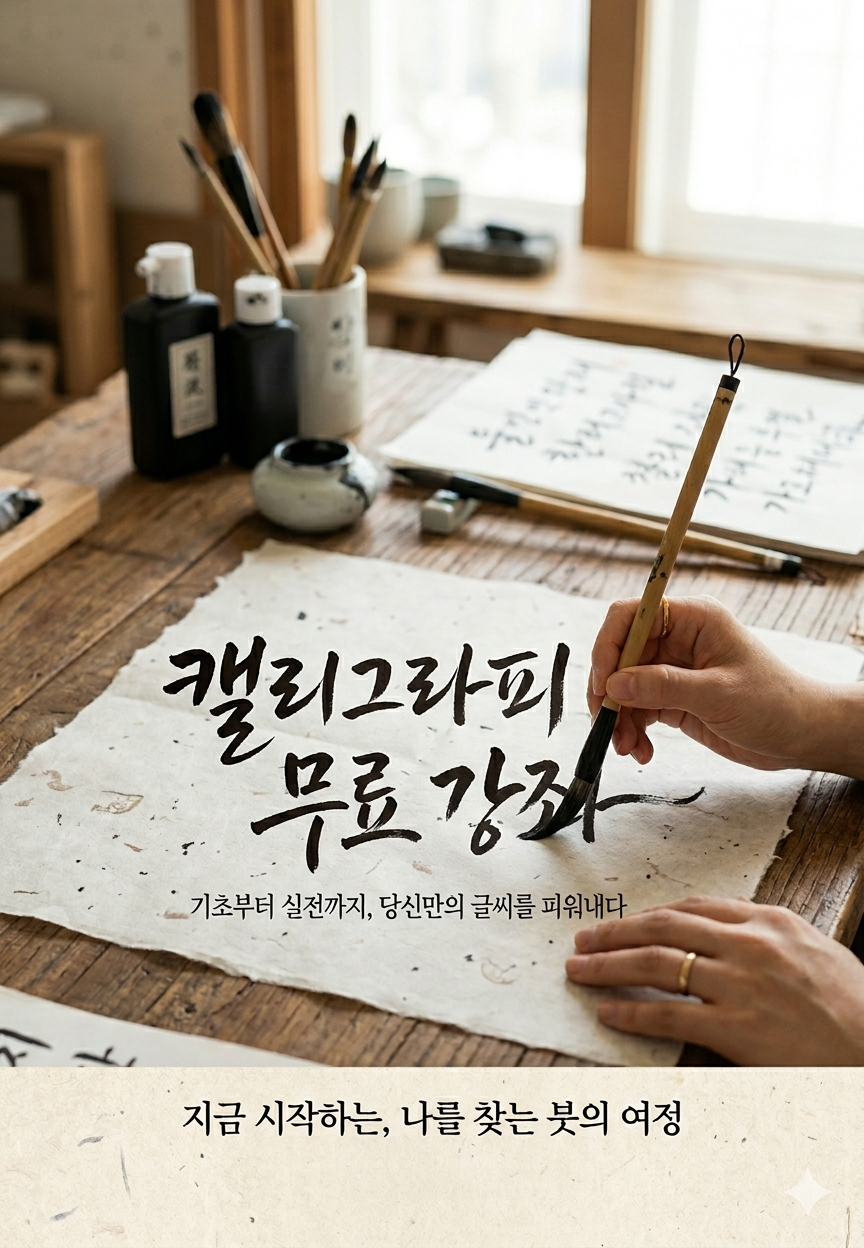 캘리그라피
무료 강좌
기초부터 실전까지, 당신만의 글씨를 피워내다
지금 시작하는, 나를 찾는 붓의 여정